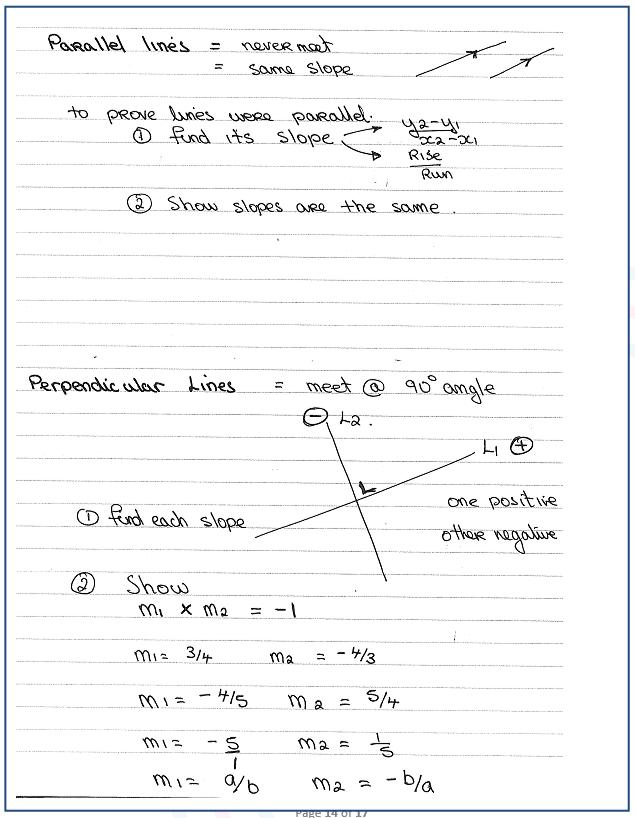 Parallel lines = never meet
= same slope
to prove lines were parallel.
① find its slope
y2-y1
x2-x1
Rise
Run
② Show slopes are the same.
Perpendicular Lines = meet @ 90° angle
⊖ L2.
L1 ⊕
one positive
① find each slope
other negative
② Show
m1 x m2 = -1
m1 = 3/4 m2 = -4/3
m1 = -4/5 m2 = 5/4
m1 = -5/1 m2 = 1/5
m1 = a/b m2 = -b/a
Page 14 of 17